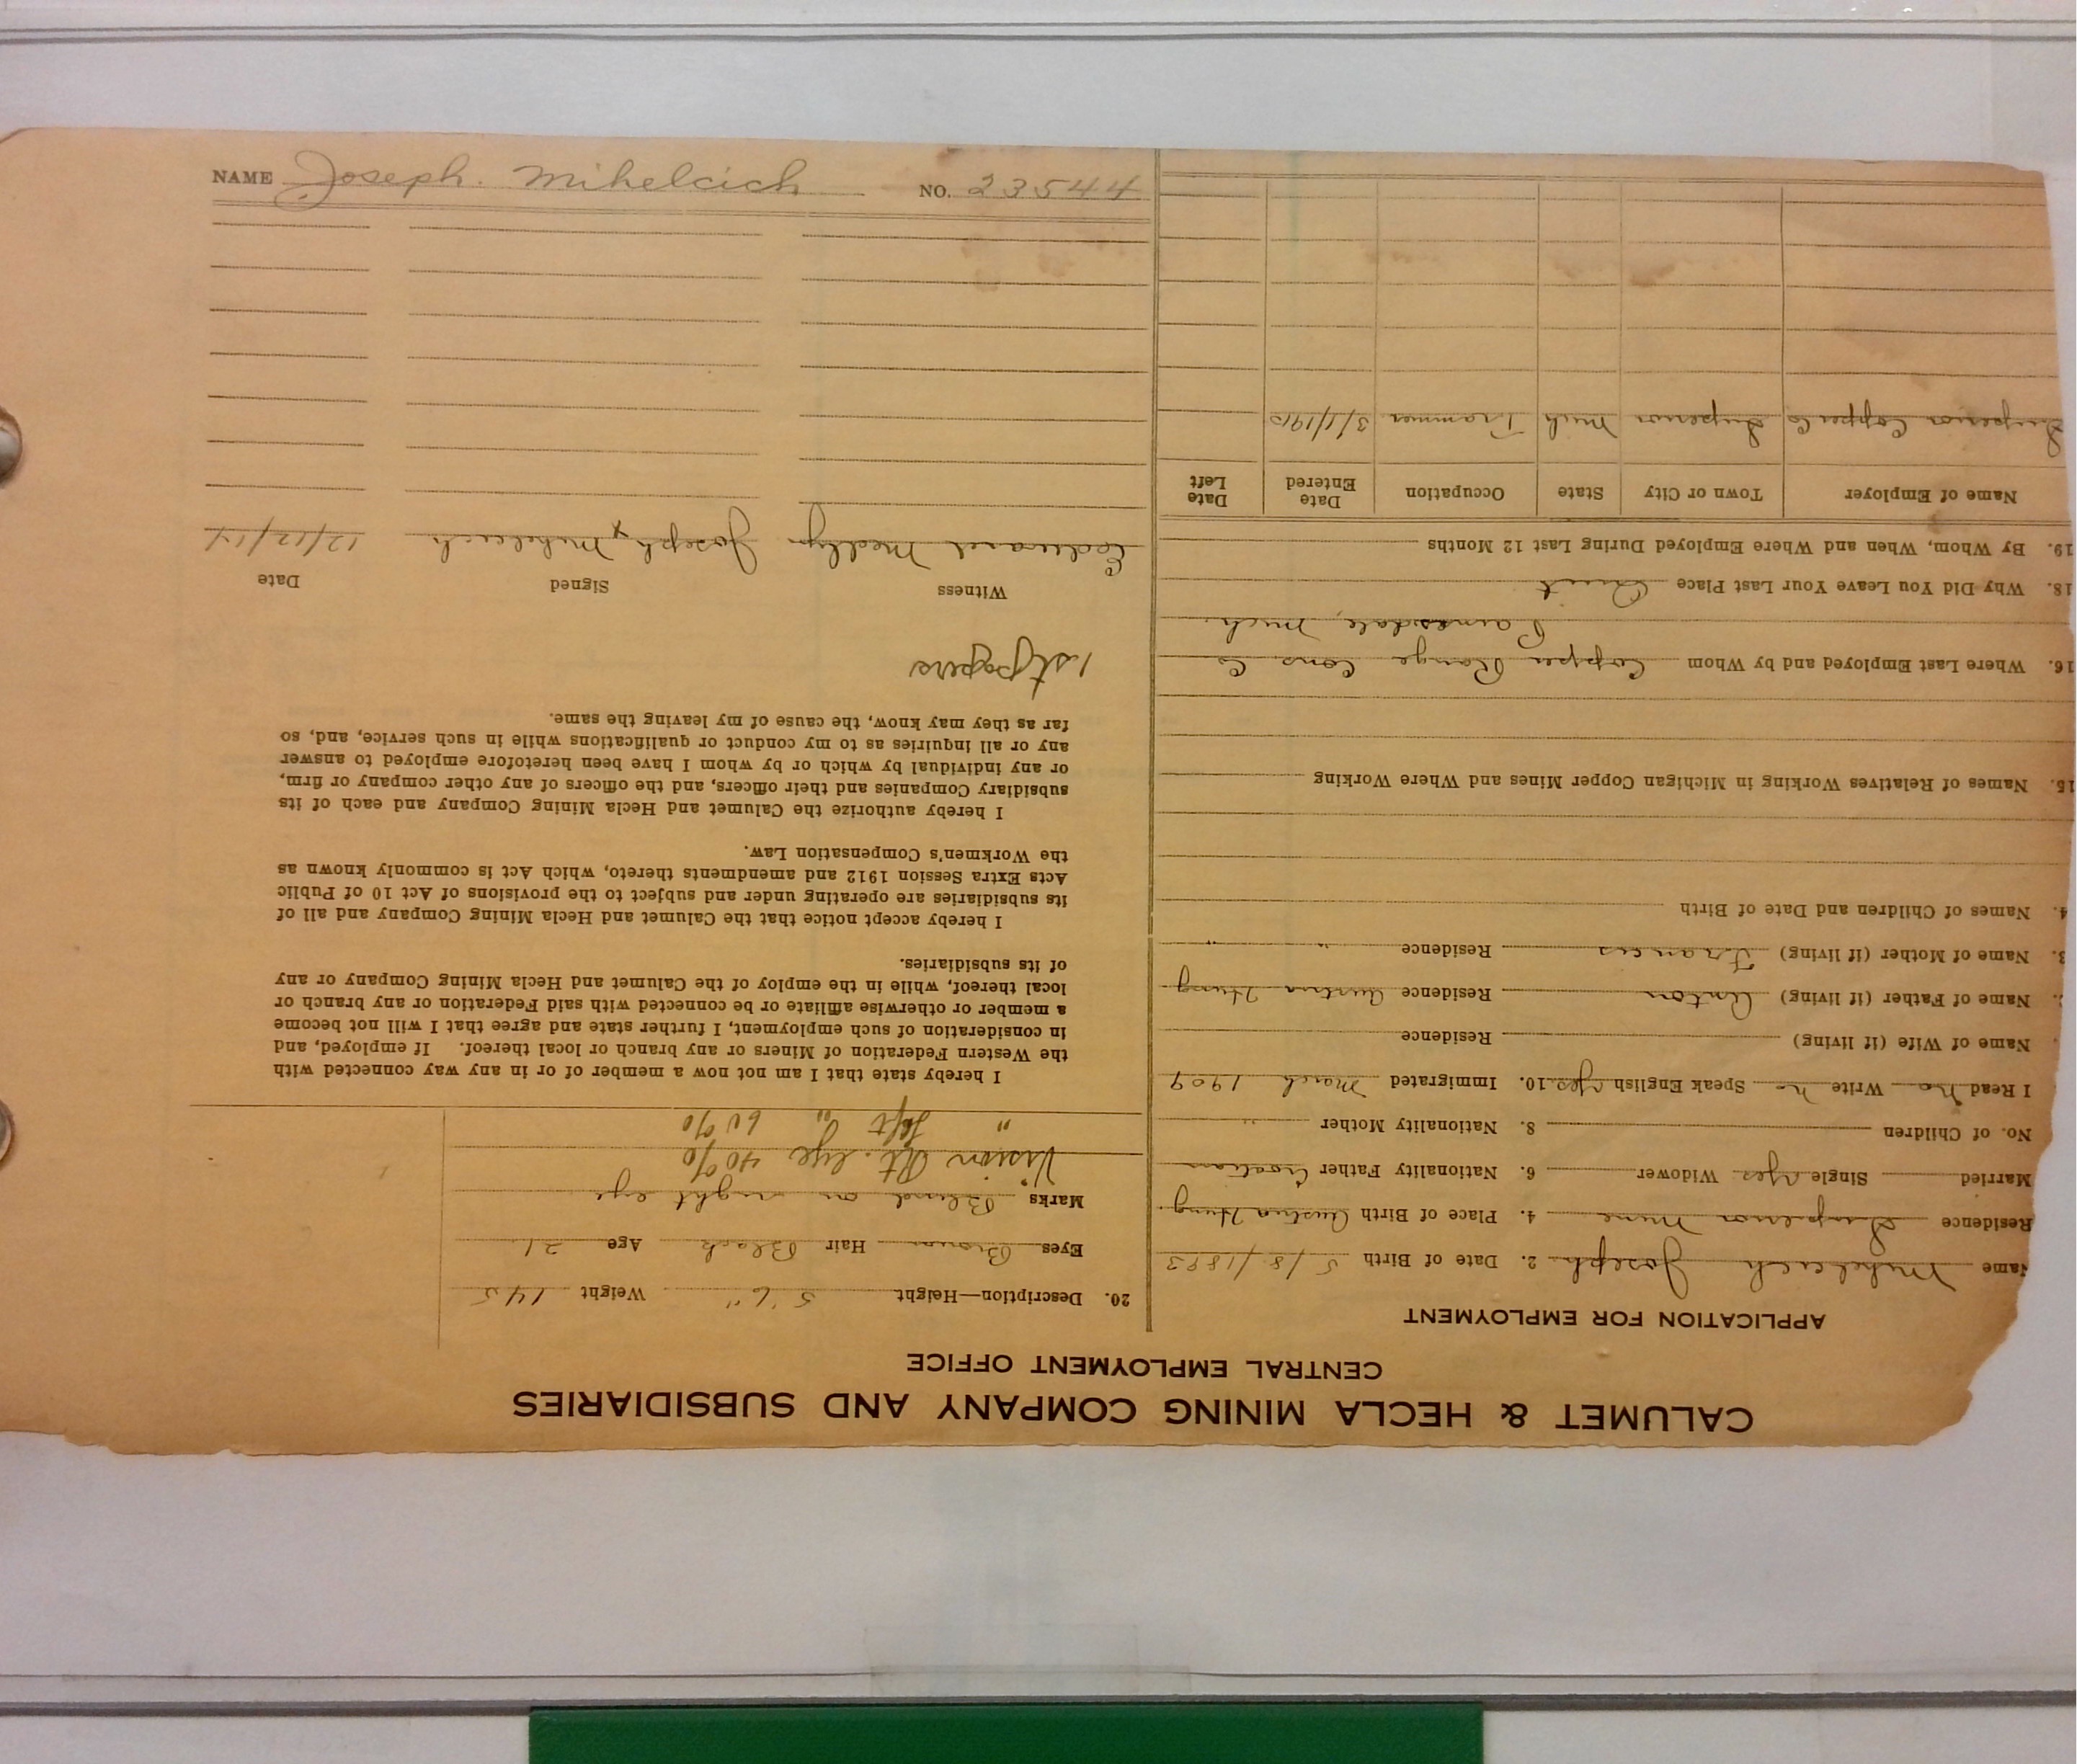 CALUMET & HECLA MINING COMPANY AND SUBSIDIARIES
CENTRAL EMPLOYMENT OFFICE
APPLICATION FOR EMPLOYMENT
Name Mihelcich Joseph 2. Date of Birth 5/8/1893
Residence Superior Mine 4. Place of Birth Austria Hung.
Married Single Yes Widower 6. Nationality Father Croatian
No. of Children 8. Nationality Mother " "
I Read No Write No Speak English Yes 10. Immigrated March 1909
Name of Wife (if living) Residence
Name of Father (if living) Anton Residence Austria Hung
3. Name of Mother (if living) Frances Residence " "
4. Names of Children and Date of Birth
15. Names of Relatives Working in Michigan Copper Mines and Where Working
16. Where Last Employed and by Whom Copper Range Cons Co
Painesdale, Mich.
18. Why Did You Leave Your Last Place Quit
19. By Whom, When and Where Employed During Last 12 Months
Name of Employer Town or City State Occupation Date Entered Date Left
Superior Copper Co Superior Mich Trammer 3/1/1910
20. Description—Height 5'6" Weight 145
Eyes Brown Hair Black Age 21
Marks Blind on right eye
Vision Rt. eye 40%
" left " 60%
I hereby state that I am not now a member of or in any way connected with
the Western Federation of Miners or any branch or local thereof. If employed, and
in consideration of such employment, I further state and agree that I will not become
a member or otherwise affiliate or be connected with said Federation or any branch or
local thereof, while in the employ of the Calumet and Hecla Mining Company or any
of its subsidiaries.
I hereby accept notice that the Calumet and Hecla Mining Company and all of
its subsidiaries are operating under and subject to the provisions of Act 10 of Public
Acts Extra Session 1912 and amendments thereto, which Act is commonly known as
the Workmen's Compensation Law.
I hereby authorize the Calumet and Hecla Mining Company and each of its
subsidiary Companies and their officers, and the officers of any other company or firm,
or any individual by which or by whom I have been heretofore employed to answer
any or all inquiries as to my conduct or qualifications while in such service, and, so
far as they may know, the cause of my leaving the same.
1st papers
Witness Signed Date
Edward Medlyn Joseph x Mihelcich 12/12/14
NAME Joseph. Mihelcich NO. 23544